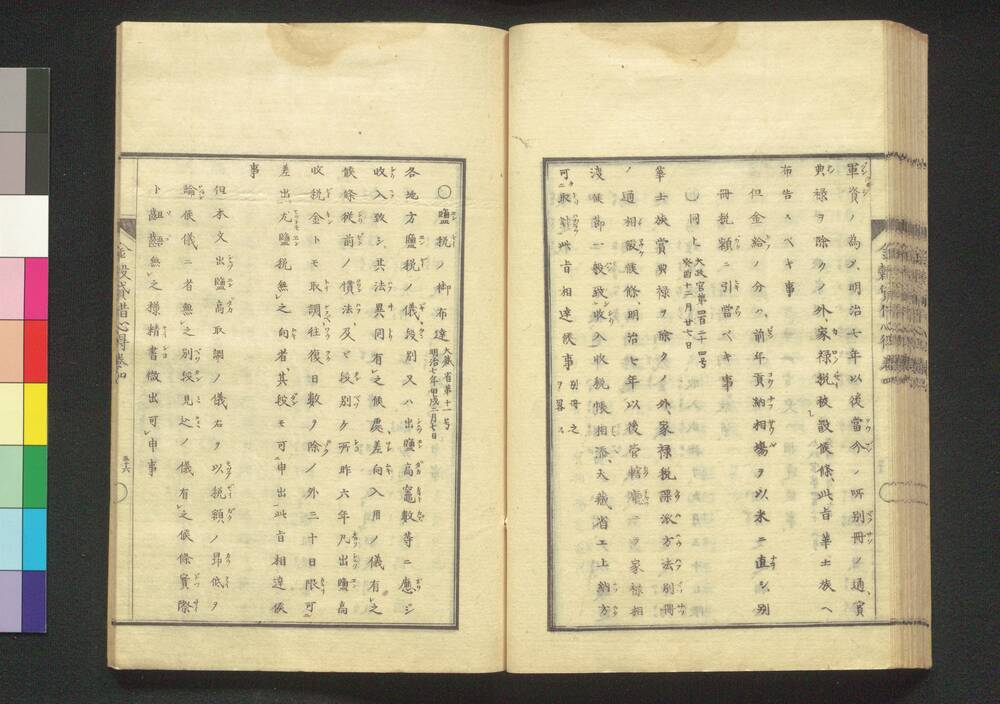 軍資ノ為メ、明治七年以後當分ノ所別冊ノ通賞
典禄ヲ除クノ外、家禄税被設候條、此旨華士族ヘ
布告スベキ事
但金給ノ分ハ、前年貢納相場ヲ以米ニ直シ、別
冊税額ニ引當ベキ事
〇同上 太政官第四百二十四号 癸酉十二月廿七日
華士族賞典禄ヲ除ク外家禄税課派方法別冊
ノ通相設候條、明治七年以後管轄廳ニテ家禄相
渡候節ニ税致収入収税帳相添、大蔵省エ上納方
可取計、此旨相達候事 別冊之ヲ畧ス
〇鹽税ノ御布達 大蔵省第一号 明治七年甲戌三月七日
各地方鹽税ノ儀段別又ハ出鹽高竈數等ニ應シ
収入致シ、其法異同有之候處差向入用ノ儀有之
候條従前ノ慣法及ヒ段別ケ所昨六年凡出鹽高
収税金トモ取調往復日數ヲ除ノ外三十日限可
差出、尤鹽税無之向者其段モ可申出此旨相達候
事
但本文出鹽高取調ノ儀右ヲ以税額ノ昂低ヲ
論候儀ニ者無之別段見込ノ儀有之候條實際
ト齟齬無之様精書儆出可申事
金穀貸借心得 巻四